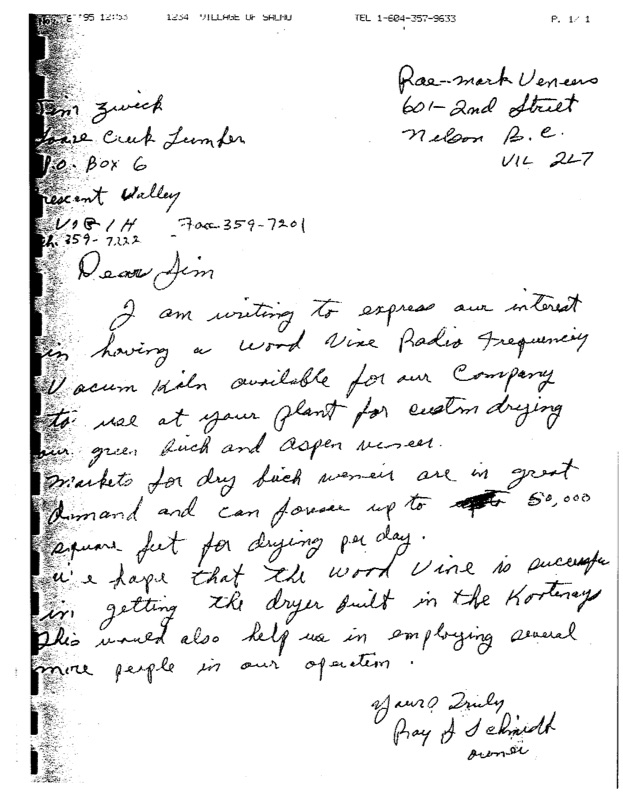 '95 12:53 1234 VILLAGE OF SALMO TEL 1-604-357-9633 P. 1/ 1
Rae-mark Veneers
601-2nd Street
Nelson B.C.
V1L 2L7
Jim Zwick
Goose Creek Lumber
P.O. Box 6
Crescent Valley
V0G 1H Fax 359-7201
Ph. 359-7222
Dear Jim
I am writing to express our interest
in having a Wood Vine Radio Frequenciy
Vacum Kiln available for our Company
to use at your plant for custm drying
our green birch and aspen veneer.
Markets for dry birch veneir are in great
demand and can forsee up to 50,000
square feet for drying per day.
We hope that the Wood Vine is successful
in getting the dryer built in the Kootenays
This would also help us in employing several
more people in our operation.
Yours Truly
Ray J Schmidt
owner